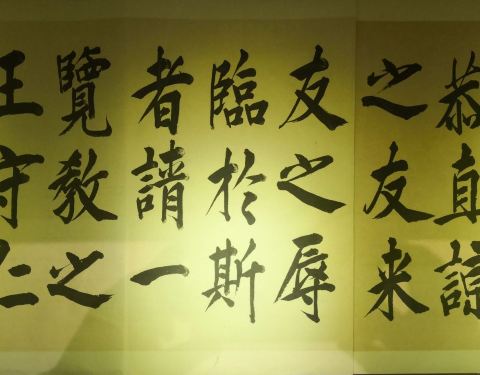 恭直諒
之友来
友之辱
臨於斯
者請一
覽教之
王守仁